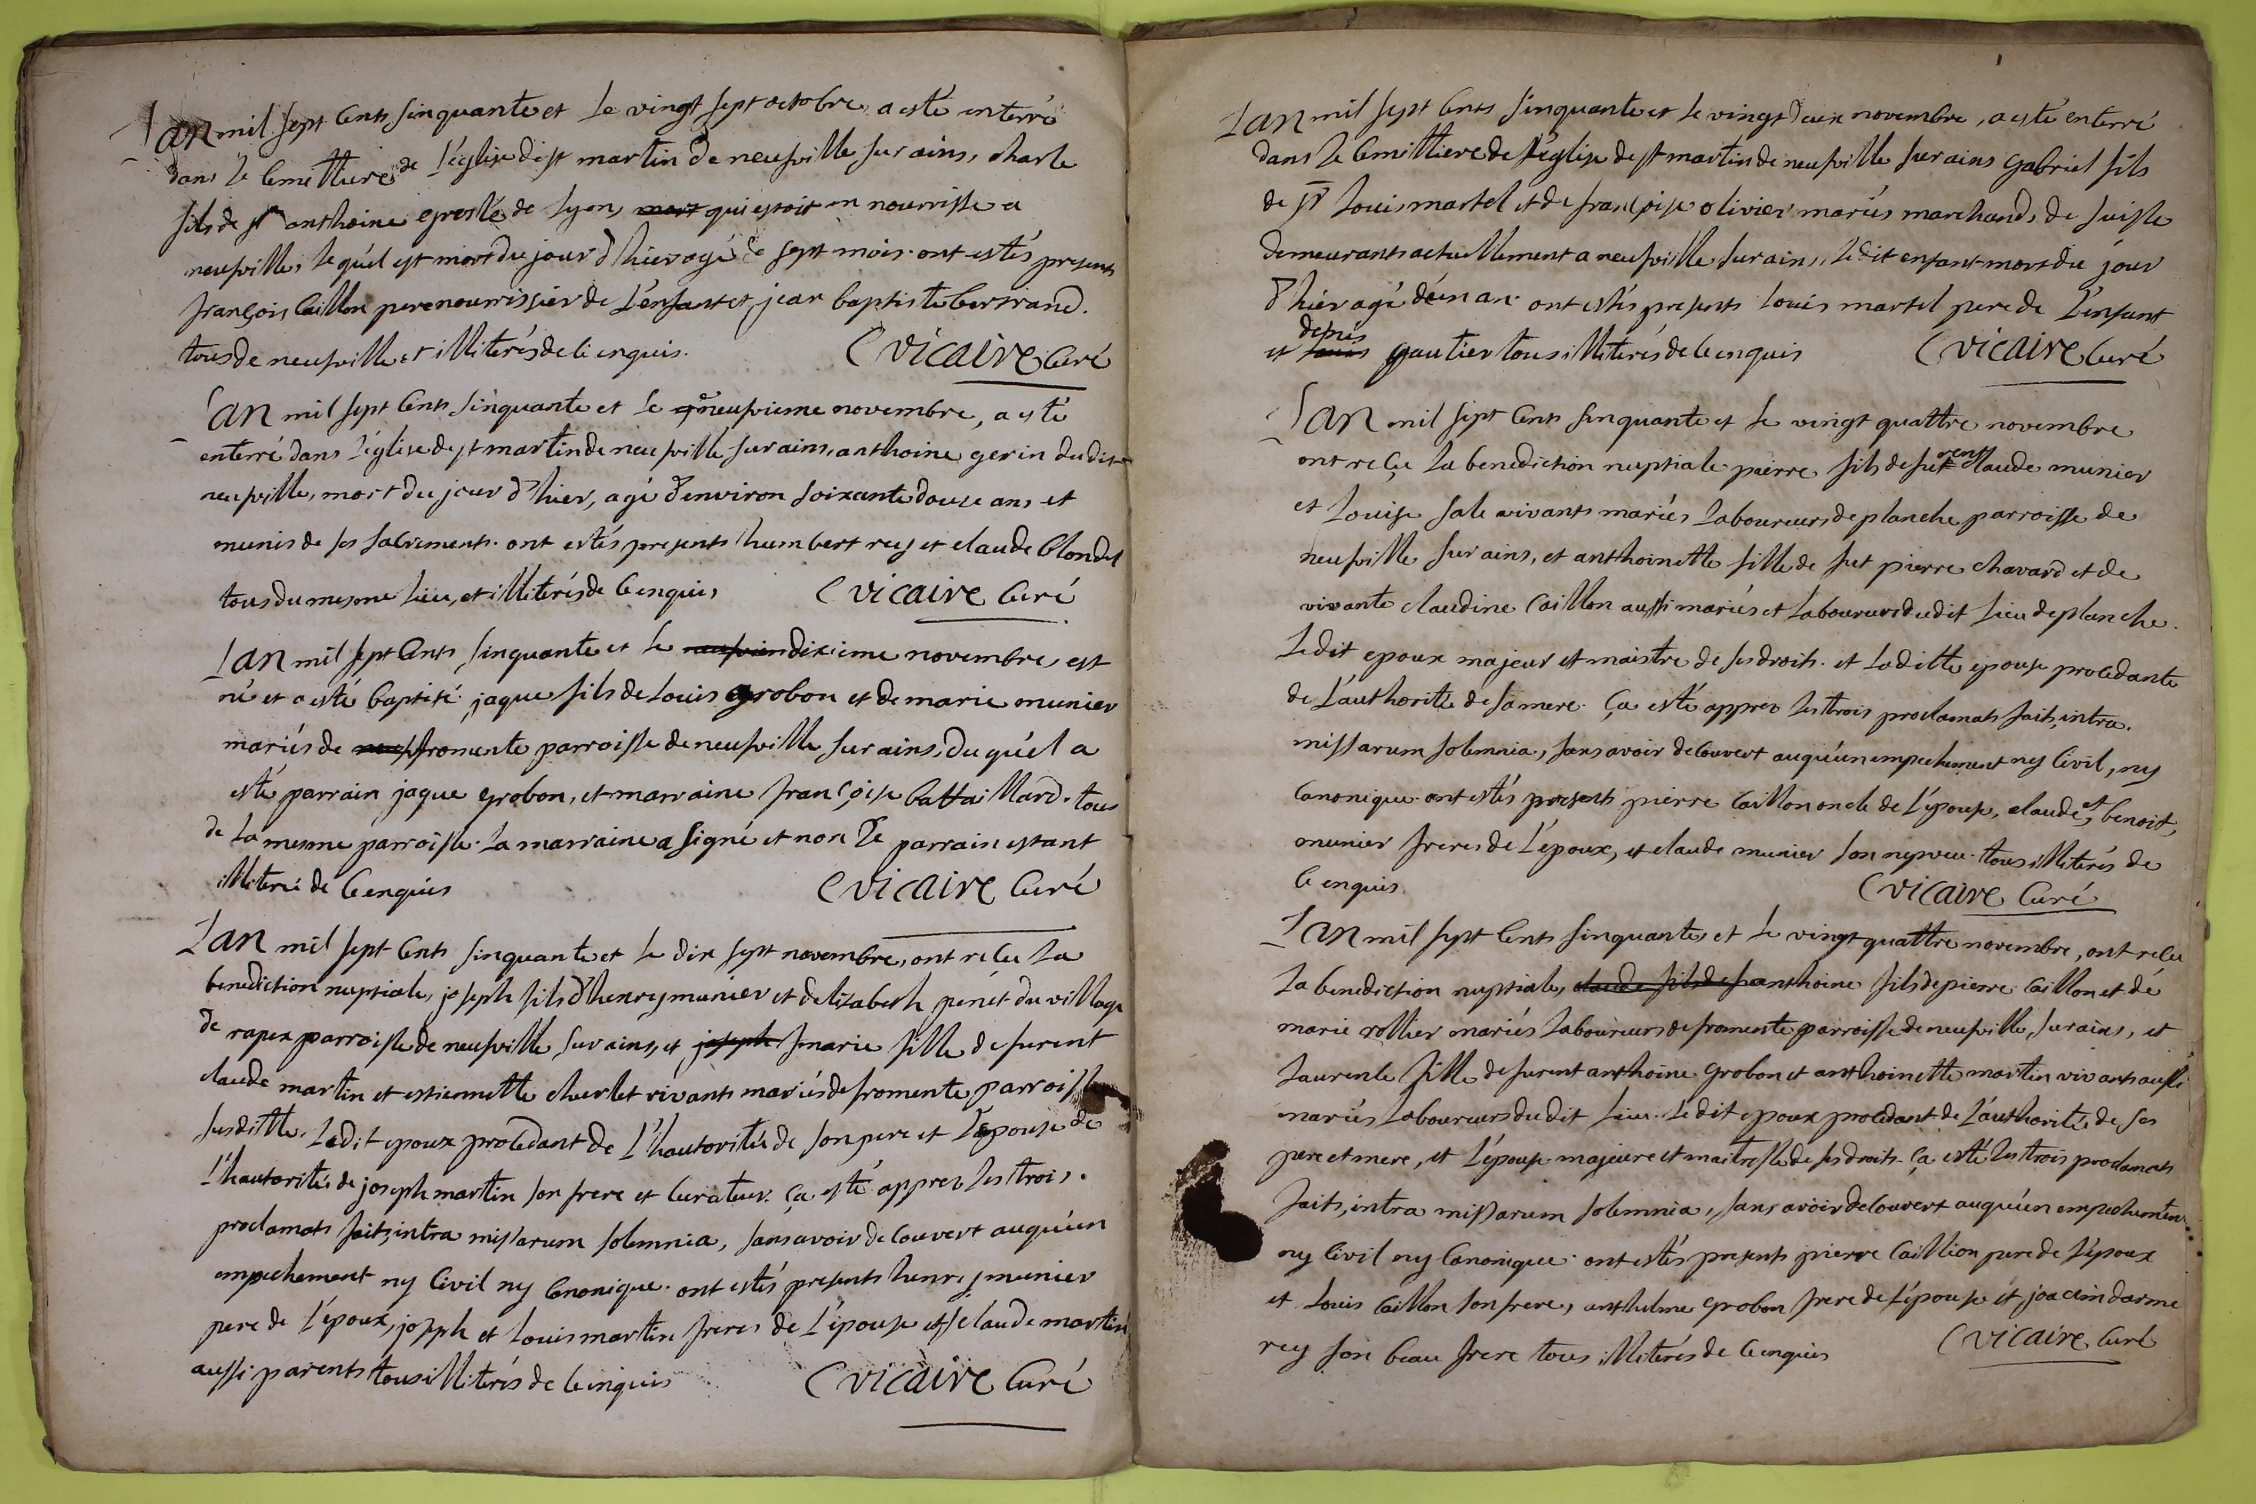 Lan mil sept cents sinquante et le vingt sept octobre, a esté enterré
dans le cemittiere de l'église de st martin de neufville sur ains, charle
fils de sr anthoine de lyon, mort qui estoit en nourrisse a
neufville, lequél est mort du jour d'hier agé de sept mois. ont estés presents
françois Caillon pere nourrissier de l'enfant et jean baptiste bertrand.
tous de neufville et illiterés de ce enquis. C vicaire Curé
Lan mil sept cents sinquante et le neufvieme novembre, a esté
enterré dans l'église de st martin de neufville sur ains, anthoine gerin dudit
neufville, mort du jour d'hier, agé d'environ soixante douze ans et
munis de ses sacrements. ont estés presents humbert rey et claude blondet
tous du mesme lieu, et illiterés de ce enquis C vicaire Curé
Lan mil sept cents sinquante et le neufvien dixieme novembre, est
né et a esté baptisé jaque fils de Louis grobon et de marie munier
mariés de neuf fromente parroisse de neufville sur ains, du quél a
esté parrain jaque grobon, et marraine françoise battaillard. tous
de la mesme parroisse. la marraine a signé et non le parrain estant
illiteré de ce enquis C vicaire Curé
Lan mil sept cents sinquante et le dix sept novembre, ont reçu la
benediction nuptiale, joseph fils d'henry munier et delizabeth penét du village
de rapex parroisse de neufville sur ains, et joseph marie fille de furent
claude martin et estiennette cherlet vivants mariés de fromente, parroisse
susditte. Ledit epoux procedant de l'hautorité de son pere et l'épouse de
l'hautorité de joseph martin son frere et curateur. ça esté apprez les trois.
proclamats faits, intra missarum solemnia, sans avoir découvert auqu'un
empechement ny civil ny canonique. ont estés presents henry munier
pere de l'époux, joseph et Louis martin freres de l'épouse et claude martin
aussi parents tous illiterés de ce enquis C vicaire Curé
Lan mil sept cents sinquante et le vingt deux novembre, a esté enterré
dans le cemittiere de l'église de st martin de neufville sur ains gabriel fils
de sr Louis martel et de françoise olivier mariés marchands de suisse
demeurants actuellement a neufville sur ains, ledit enfant mort du jour
d'hier agé d'un an. ont estés presents Louis martel pere de l'enfant
denis
et Louis gautier tous illiterés de ce enquis C vicaire Curé
Lan mil sept cents sinquante et le vingt quattre novembre
ont reçu la benediction nuptiale pierre fils de furent claude munier
et Louise sale vivants mariés laboureurs de planche parroisse de
neufville sur ains, et anthoinette fille de fut pierre chavard et de
vivante claudine Caillon aussi mariés et laboureurs dudit lieu de planche.
Ledit epoux majeur et maistre de ses droits. et laditte epouse procedante
de l'authorité de sa mere. ça esté apprez les trois proclamats faits, intra.
missarum solemnia, sans avoir découvert auqu'un empechement ny civil, ny
canonique. ont estés presents pierre Caillon oncle de l'épouse, claude, et benoit,
munier freres de l'époux, et claude munier son nepveu. tous illiterés de
ce enquis. C vicaire Curé
Lan mil sept cents sinquante et le vingt quattre novembre, ont reçu
la benediction nuptiale, claude fils de fu anthoine fils de pierre Caillon et de
marie rollier mariés laboureurs de fromente parroisse de neufville, sur ains, et
laurence fille de furent anthoine grobon et anthoinette martin vivants aussi
mariés laboureurs dudit lieu. Ledit epoux procedant de l'authorité, de ses
pere et mere, et l'épouse majeure et maitresse de ses droits. ça esté les trois proclamats
faits, intra missarum solemnia, sans avoir découvert auqu'un empechement
ny civil ny canonique. ont estés presents pierre Caillion pere de l'époux
et Louis Caillon son frere, anthelme grobon frere de l'épouse et joacim darme
rey son beau frere tous illiterés de ce enquis C vicaire Curé